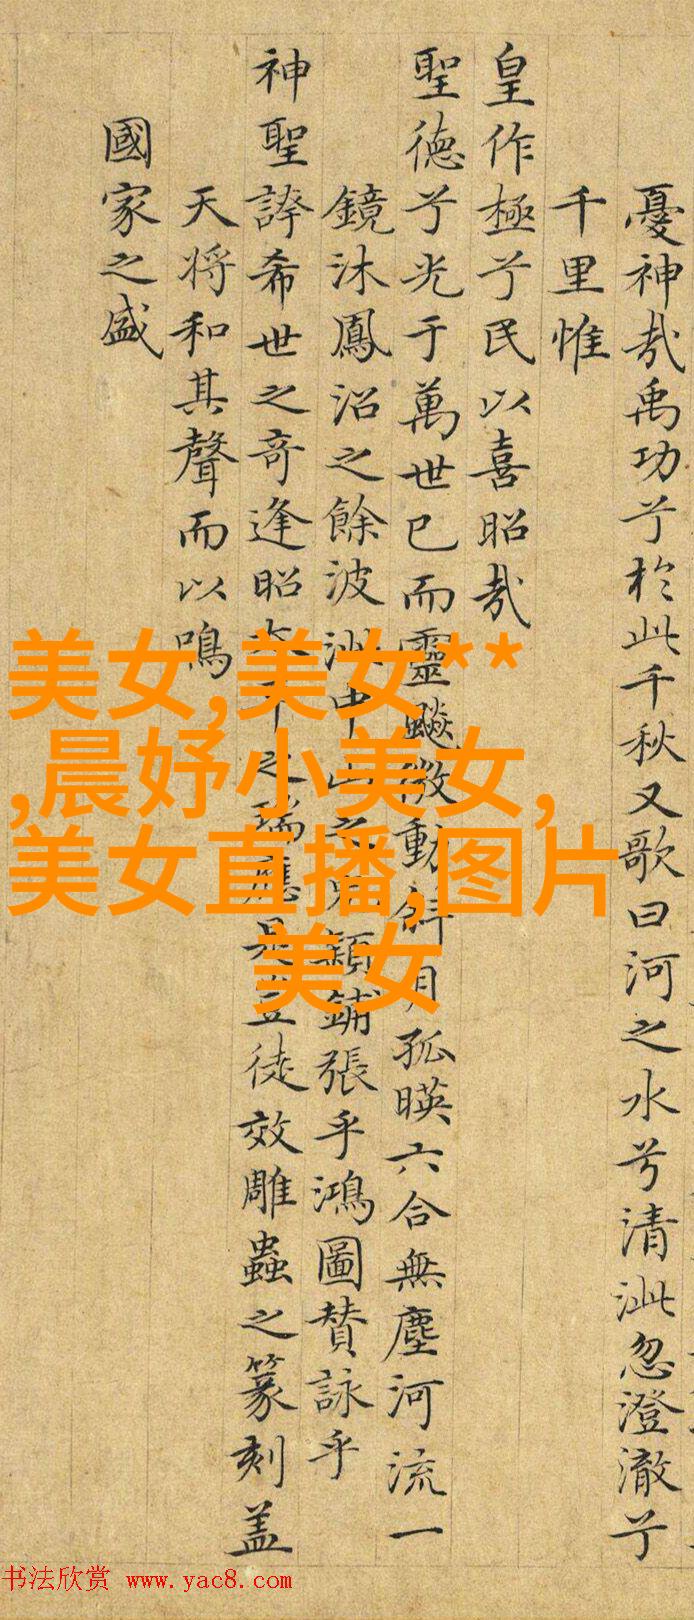 憂神哉禹功兮於泚千秋又歌曰河之水兮清泚忽澄澈兮
千里惟
皇作極兮民以喜昭哉
聖德兮光于萬世已而靈飇微動斜月孤暎六合無塵河流一
鏡沐鳳沼之餘波泚中山之兔穎鋪張乎鴻圖贊詠乎
神聖誇希世之奇逢昭太平之瑞應是豈徒效雕蟲之篆刻盖
天将和其聲而以鳴
國家之盛
美女,美女**
,晨妤小美女,
美女直播,图片
美女
书法欣赏 www.yac8.com